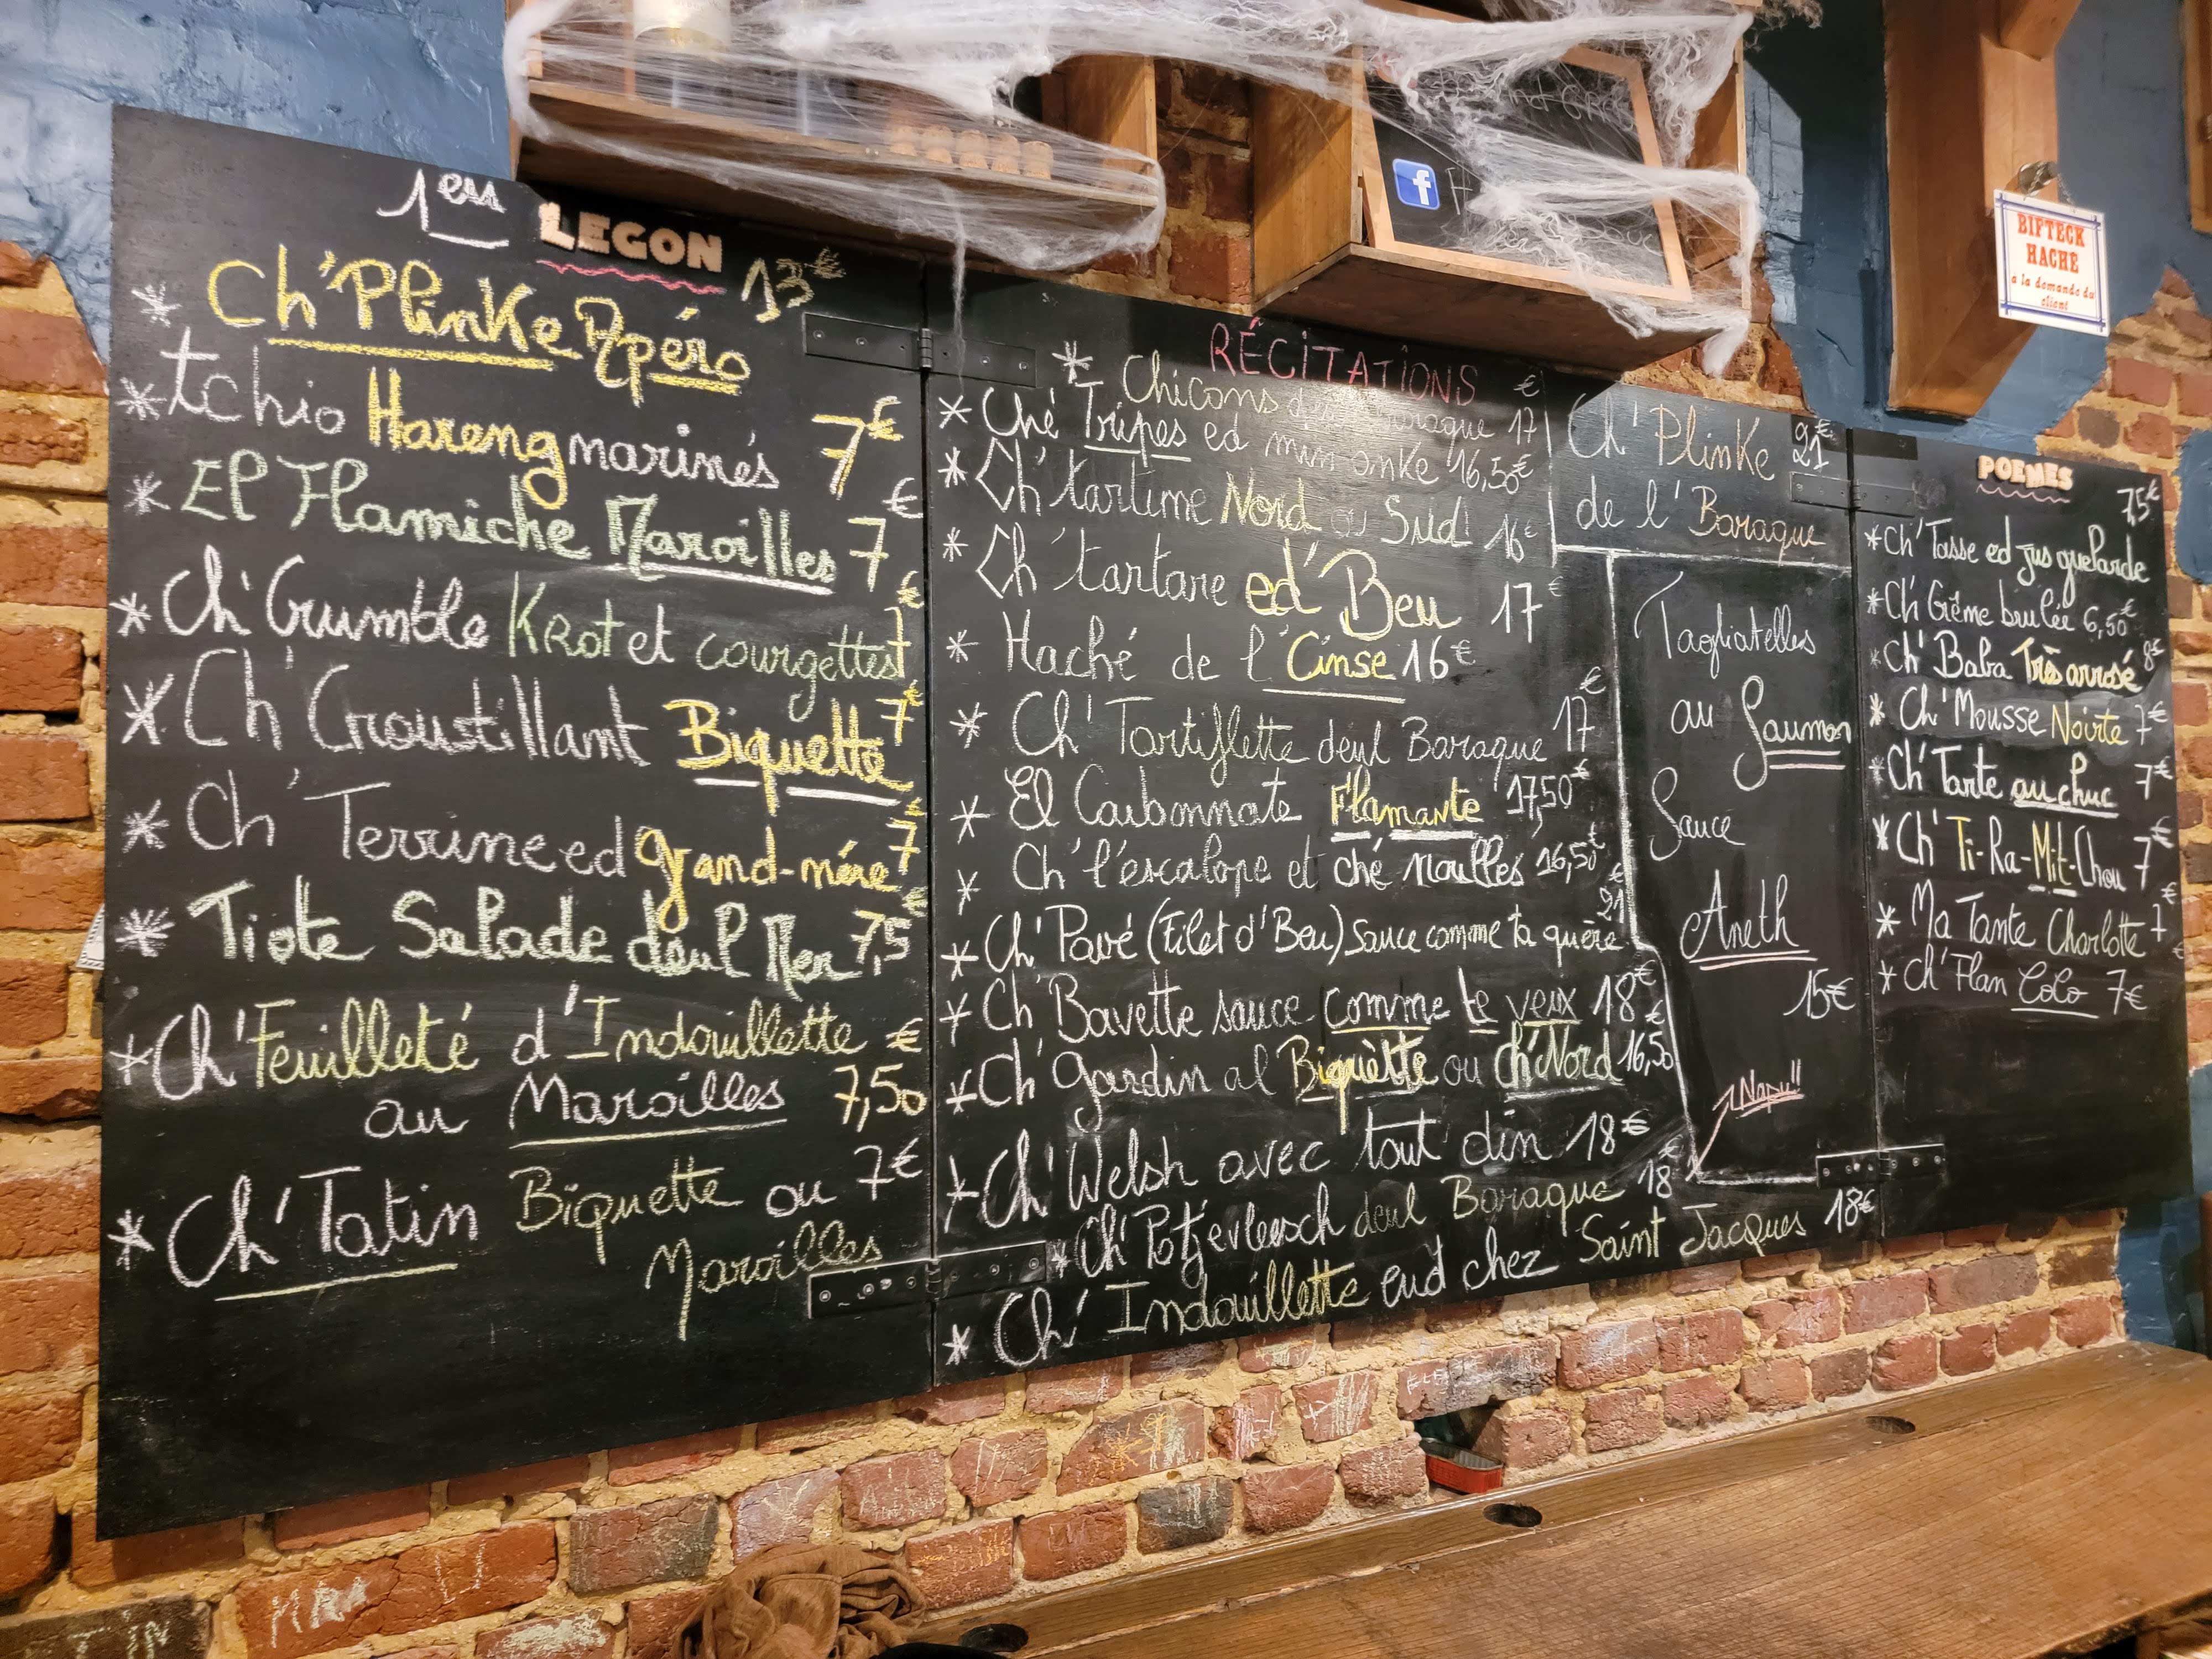 1eu LEGON
* Ch'Plinke Apéro 13€
* tchio Hareng marinés 7€
* El Flamiche Maroilles 7€
* Ch' Crumble Krot et courgettes 7€
* Ch' Croustillant Biquette 7€
* Ch' Terrine ed grand-mére 7€
* Tiote Salade deul Mer 7,5€
* Ch' Feuilleté d'Indouillette
au Maroilles 7,50€
* Ch' Tatin Biquette ou 7€
Maroilles
RÉCITATIONS
* Chicons Baraque 17€
* Ché Tripes ed min onke 16,50€
* Ch' tartine Nord ou Sud 16€
* Ch' tartare ed' Beu 17€
* Haché de l'Cinse 16€
* Ch' Tartiflette deul Baraque 17€
* El Carbonnate Flamante 17,50€
* Ch' l'escalope et ché noulles 16,50€
* Ch' Pavé (Filet d'Beu) Sauce comme ta quére 21€
* Ch' Bavette sauce comme te veux 18€
* Ch' gardin al Biquètte ou ch'Nord 16,50€
* Ch' Welsh avec tout din 18€
* Ch' Potjevleesch deul Baraque 18€
* Ch' Indouillette eud chez Saint Jacques 18€
Ch' Plinke 21€
de l' Baraque
Tagliatelles
au Saumon
Sauce
Aneth
15€
Napu!!
POEMES
* Ch' Tasse ed jus guelarde 7,5€
* Ch' Crème brulée 6,50€
* Ch' Baba Très arrosé 8€
* Ch' Mousse Noirte 7€
* Ch' Tarte au chuc 7€
* Ch' Ti-Ra-Mit-Chou 7€
* Ma Tante Charlotte 7€
* Ch' Flan Coco 7€
BIFTECK
HACHE
a la demande du
client